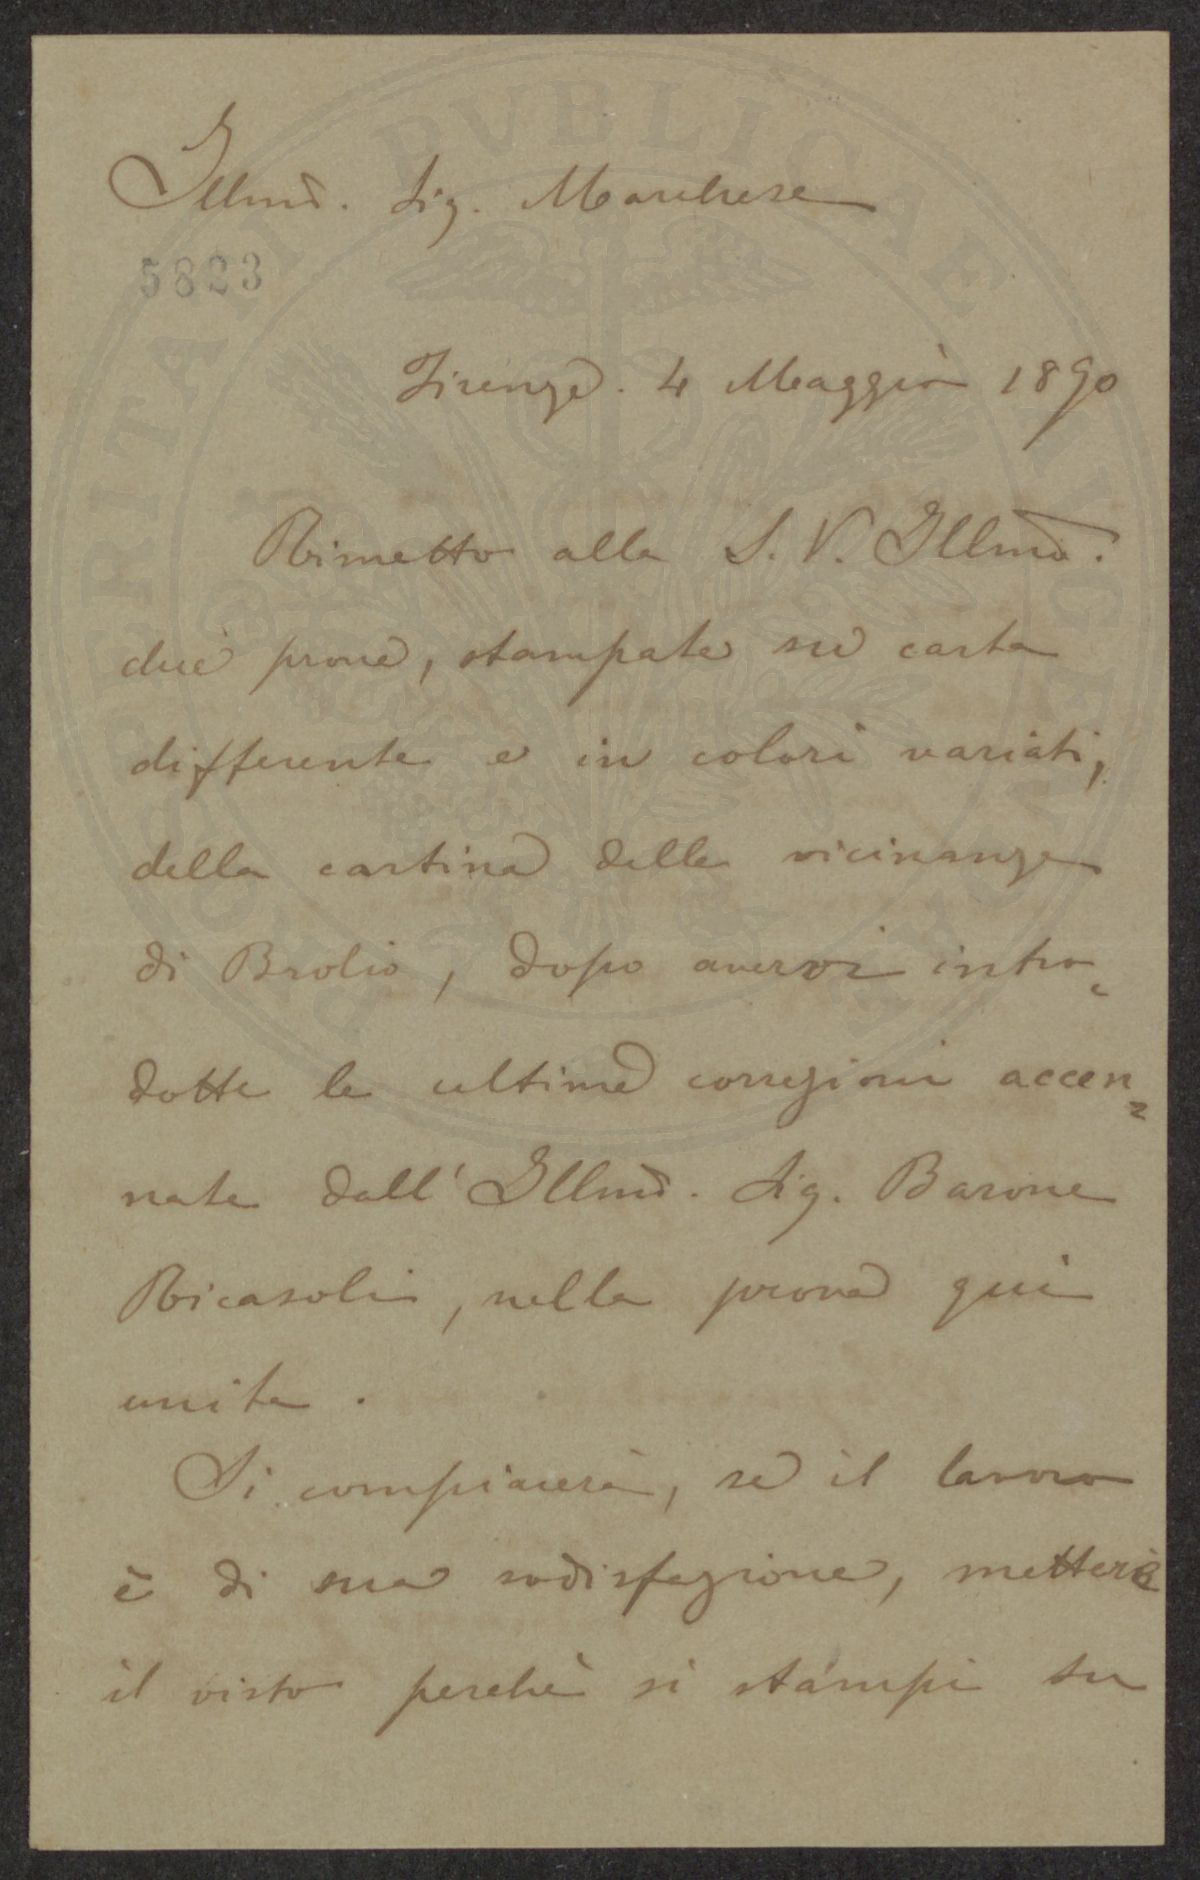 Illmo. Sig. Marchese
5823
Firenze. 4 Maggio 1890
Rimetto alla S. V. Illma.
due prove, stampate su carta
differente e in colori variati,
della cartina delle vicinanze
di Brolio, dopo avervi intro-
dotte le ultime correzioni accen-
nate dall' Illmo. Sig. Barone
Ricasoli, nella prova qui
unita.
Si compiacerà, se il lavoro
è di sua sodisfazione, mettere
il visto perchè si stampi su